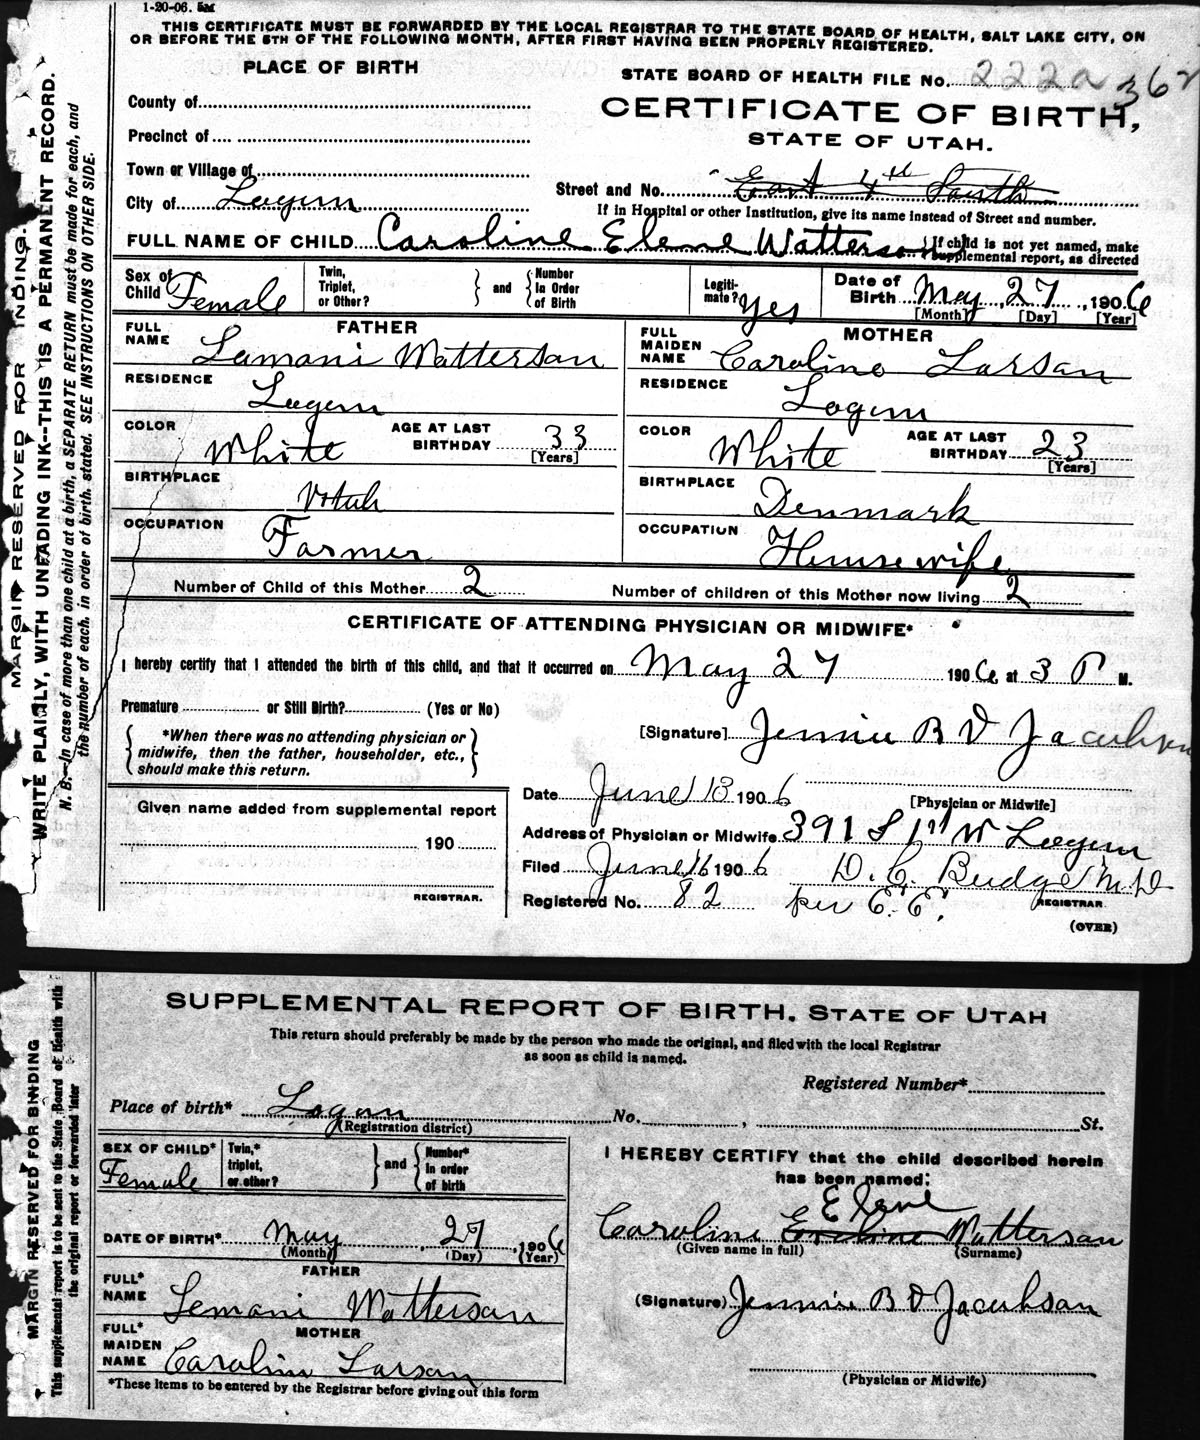 1-20-06. 5M
THIS CERTIFICATE MUST BE FORWARDED BY THE LOCAL REGISTRAR TO THE STATE BOARD OF HEALTH, SALT LAKE CITY, ON
OR BEFORE THE 5TH OF THE FOLLOWING MONTH, AFTER FIRST HAVING BEEN PROPERLY REGISTERED.
PLACE OF BIRTH
STATE BOARD OF HEALTH FILE No. 222a 362
County of
CERTIFICATE OF BIRTH,
Precinct of
STATE OF UTAH.
Town or Village of
Street and No. East 4th South
City of Logan
If in Hospital or other Institution, give its name instead of Street and number.
FULL NAME OF CHILD Caroline Elene Watterson { If child is not yet named, make supplemental report, as directed
Sex of Child Female Twin, Triplet, or Other? } and { Number in Order of Birth Legitimate? Yes Date of Birth May 27, 1906
[Month] [Day] [Year]
FATHER
FULL NAME Lamani Watterson
RESIDENCE Logan
COLOR White AGE AT LAST BIRTHDAY 33
[Years]
BIRTHPLACE Utah
OCCUPATION Farmer
MOTHER
FULL MAIDEN NAME Caroline Larsan
RESIDENCE Logan
COLOR White AGE AT LAST BIRTHDAY 23
[Years]
BIRTHPLACE Denmark
OCCUPATION Housewife
Number of Child of this Mother 2 Number of children of this Mother now living 2
CERTIFICATE OF ATTENDING PHYSICIAN OR MIDWIFE*
I hereby certify that I attended the birth of this child, and that it occurred on May 27 1906, at 3 P M.
Premature or Still Birth? (Yes or No)
*When there was no attending physician or
midwife, then the father, householder, etc.,
should make this return.
[Signature] Jennie B D Jacobsen
[Physician or Midwife]
Given name added from supplemental report
190
REGISTRAR.
Date June 13 1906
Address of Physician or Midwife 391 S 1st W Logan
Filed June 16 1906 D. C. Budge M.D
Registered No. 82 per E. E. REGISTRAR.
(OVER)
MARGIN RESERVED FOR BINDING.
WRITE PLAINLY, WITH UNFADING INK--THIS IS A PERMANENT RECORD.
N. B.—In case of more than one child at a birth, a SEPARATE RETURN must be made for each, and
the number of each, in order of birth, stated. SEE INSTRUCTIONS ON OTHER SIDE.
SUPPLEMENTAL REPORT OF BIRTH. STATE OF UTAH
This return should preferably be made by the person who made the original, and filed with the local Registrar
as soon as child is named.
Registered Number*
Place of birth* Logan No. , St.
(Registration district)
SEX OF CHILD* Female Twin,* triplet, or other? } and { Number* in order of birth
DATE OF BIRTH* May 27, 1906
(Month) (Day) (Year)
FATHER
FULL* NAME Lemani Watterson
MOTHER
FULL* MAIDEN NAME Caroline Larsan
*These items to be entered by the Registrar before giving out this form
I HEREBY CERTIFY that the child described herein
has been named:
Elene
Caroline Watterson
(Given name in full) (Surname)
(Signature) Jennie B D Jacobson
(Physician or Midwife)
MARGIN RESERVED FOR BINDING
This supplemental report is to be sent to the State Board of Health with
the original report or forwarded later